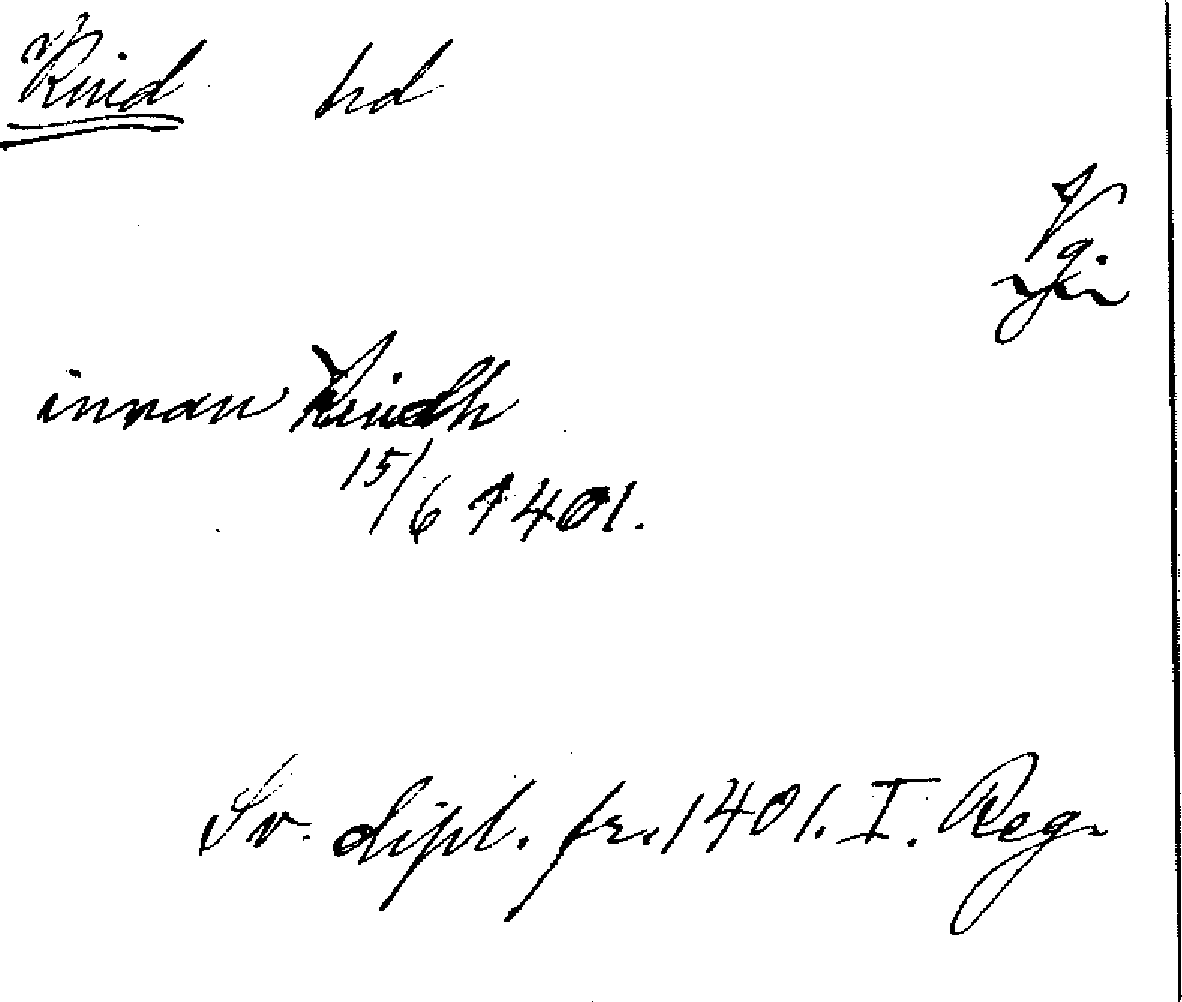 Kind hd
Vg.
innan Kindh
15/6 1401.
Sv. dipl. fr. 1401. I. Reg.